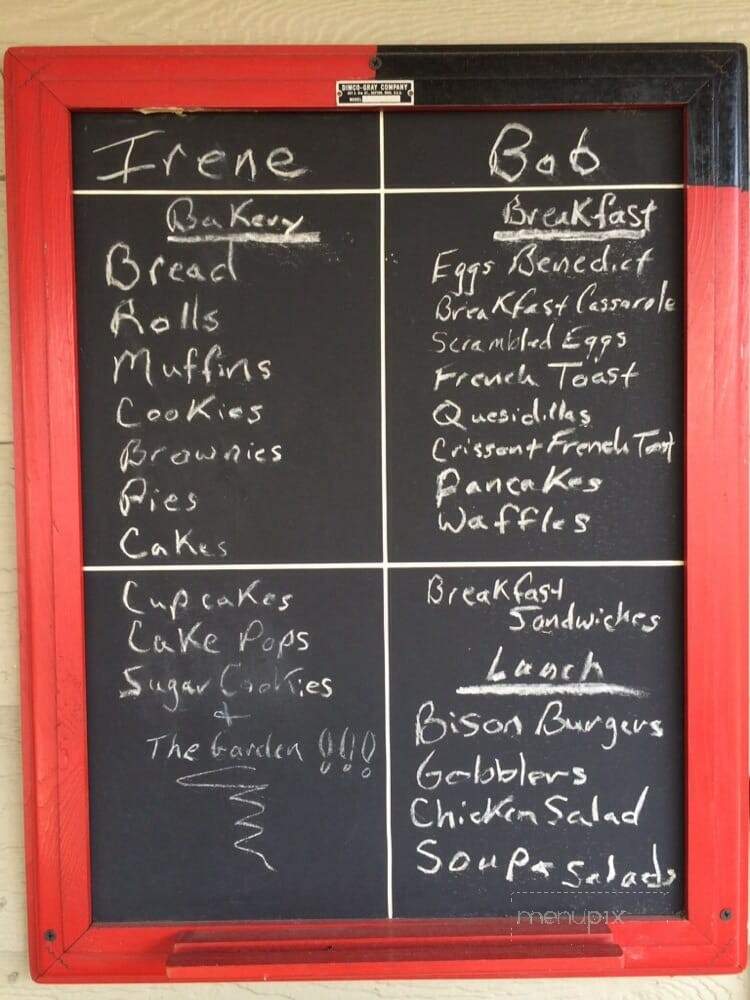 DIMCO-GRAY COMPANY
Irene
Bakery
Bread
Rolls
Muffins
Cookies
Brownies
Pies
Cakes
Cupcakes
Cake Pops
Sugar Cookies
+
The Garden !!!
Bob
Breakfast
Eggs Benedict
Breakfast Cassarole
Scrambled Eggs
French Toast
Quesidillas
Crissant French Toast
Pancakes
Waffles
Breakfast
Sandwiches
Lunch
Bison Burgers
Gobblers
Chicken Salad
Soup + Salads
menupix